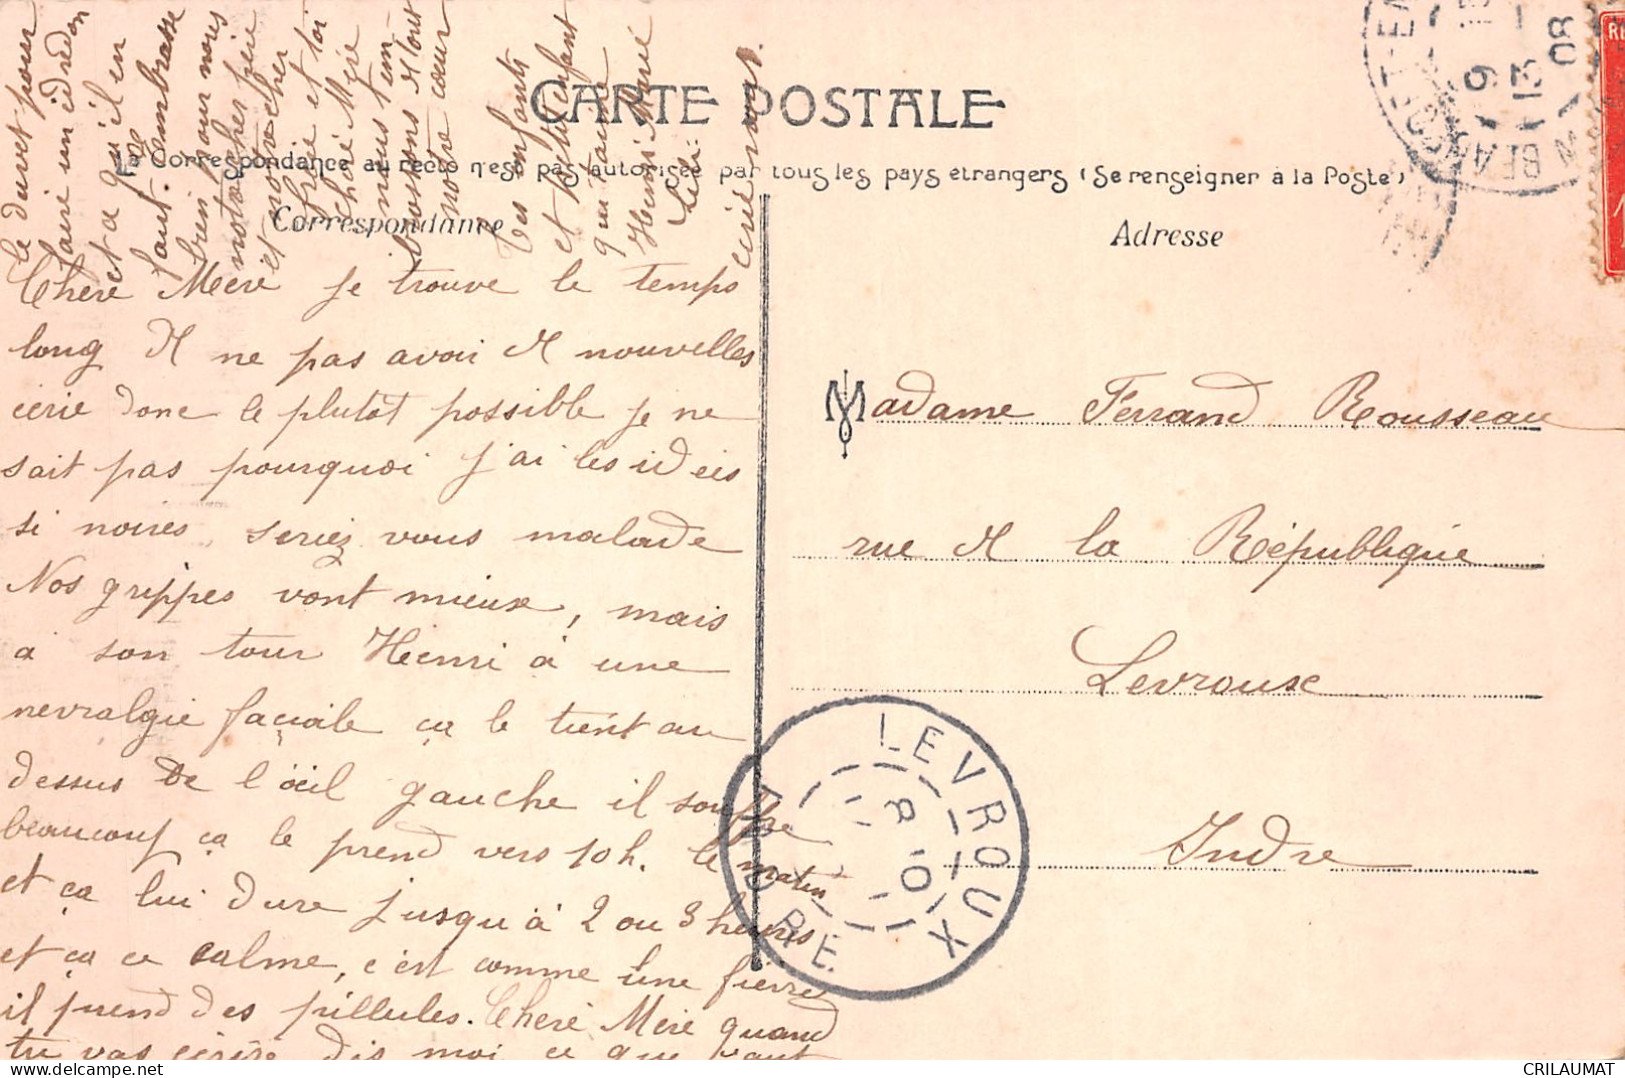 CARTE POSTALE
La Correspondance au recto n'est pas autorisée par tous les pays étrangers (Se renseigner à la Poste)
Correspondance
Adresse
Chère Mère je trouve le temps
long de ne pas avoir de nouvelles
écrie donc le plutôt possible je ne
sait pas pourquoi j'ai les ideés
si noires, seriez vous malade
Nos grippes vont mieux, mais
a son tour Henri à une
nevralgie façiale ça le tient au
dessus de l'œil gauche il souffre
beaucoup ça le prend vers 10h. le matin
et ça lui dure jusqu'à 2 ou 3 heures
et ça ce calme, c'est comme une fievre
il prend des pillules. Chère Mère quand
tu vas écrire dis moi ce que vaut
le duvet pour
faire un edredon
et a qu'il en
faut. embrasse
bien pour nous
notre cher père
et notre cher
frère et toi
chère Mère
nous t'em
brassons de tout
notre cœur
tes enfants
et petit enfant
qui t'aime
Henri Marie
écrie nous.
Madame Ferrand Rousseau
rue de la République
Levroux
Indre
LEVROUX
INDRE
13
08